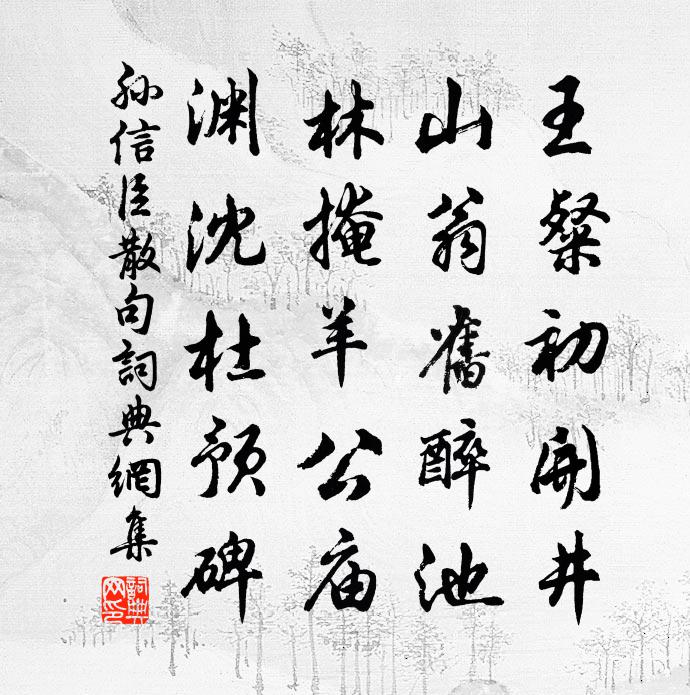 王粲初開井
山翁舊醉池
林掩羊公庙
渊沈杜预碑
孙信臣散句詞典網集
詞典网印